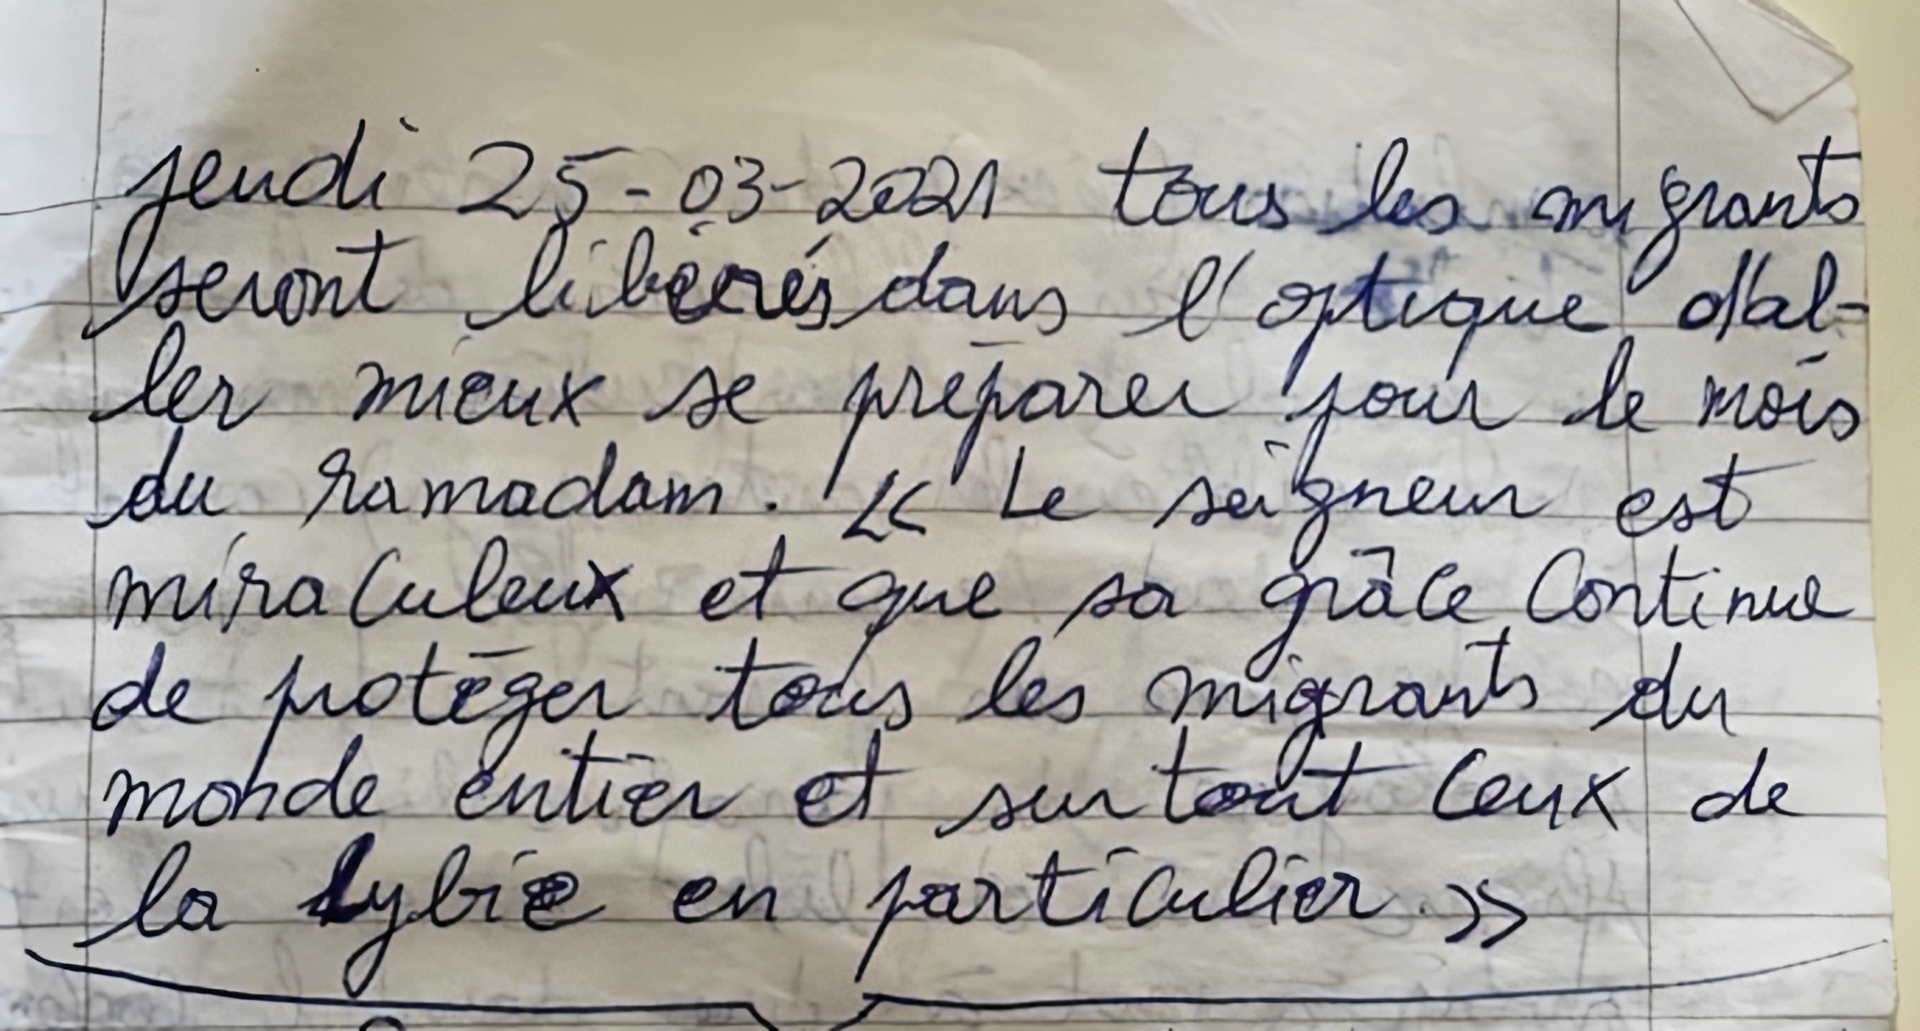 jeudi 25-03-2021 tous les migrants
seront libérés dans l'optique d'al-
ler mieux se préparer pour le mois
du ramadam. << Le seigneur est
miraculeux et que sa grâce continue
de protéger tous les migrants du
monde entier et surtout ceux de
la Lybie en particulier.>>